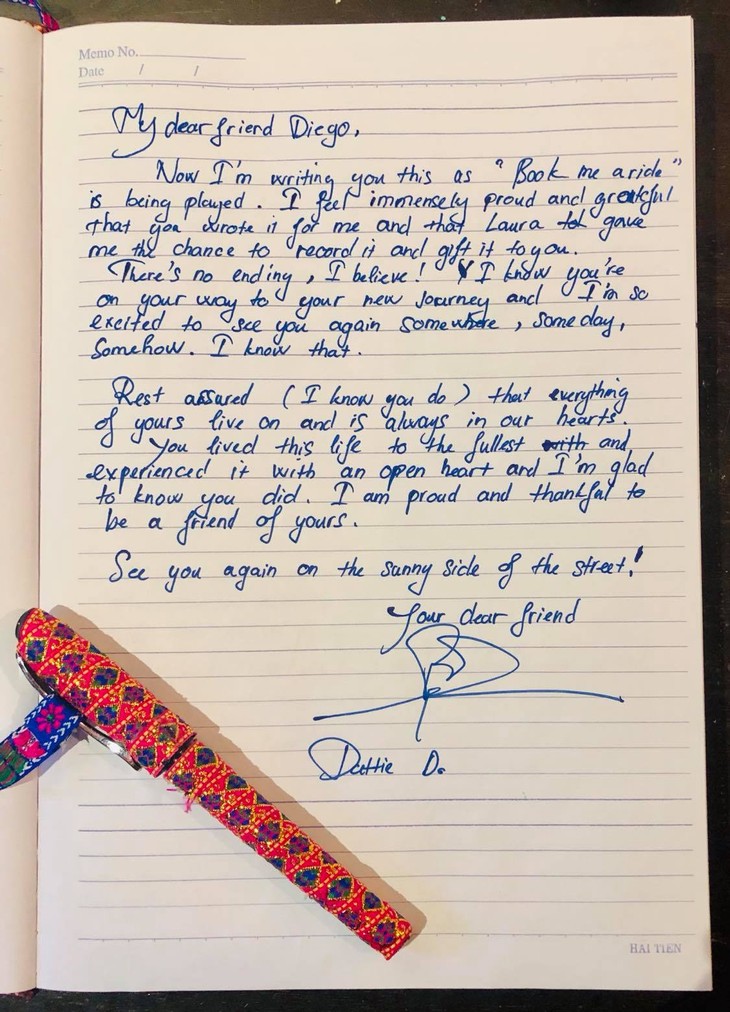 Memo No.
Date / /
My dear friend Diego,
Now I'm writing you this as "Book me a ride"
is being played. I feel immensely proud and grateful
that you wrote it for me and that Laura gave
me the chance to record it and gift it to you.
There's no ending, I believe! I know you're
on your way to your new Journey and I'm so
excited to see you again somewhere, someday,
Somehow. I know that.
Rest assured (I know you do) that everything
of yours live on and is always in our hearts.
You lived this life to the fullest with and
experienced it with an open heart and I'm glad
to know you did. I am proud and thankful to
be a friend of yours.
See you again on the sunny side of the street!
Your dear friend
Dattie D.
HẢI TIẾN